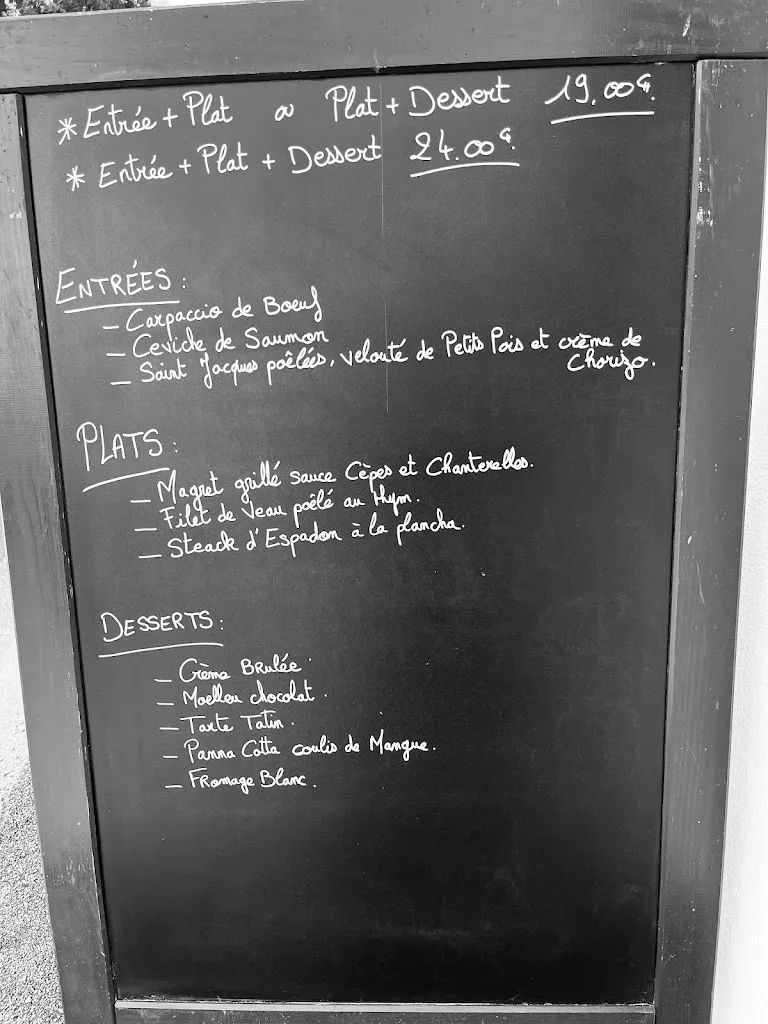 * Entrée + Plat ou Plat + Dessert 19.00€.
* Entrée + Plat + Dessert 24.00€.
ENTRÉES :
- Carpaccio de Boeuf
- Ceviche de Saumon
- Saint Jacques poêlées, velouté de Petits Pois et crème de
Chorizo.
PLATS :
- Magret grillé sauce Cèpes et Chanterelles.
- Filet de Veau poêlé au thym.
- Steack d'Espadon à la plancha.
DESSERTS :
- Crème Brulée.
- Moelleu chocolat.
- Tarte Tatin.
- Panna Cotta coulis de Mangue.
- Fromage Blanc.